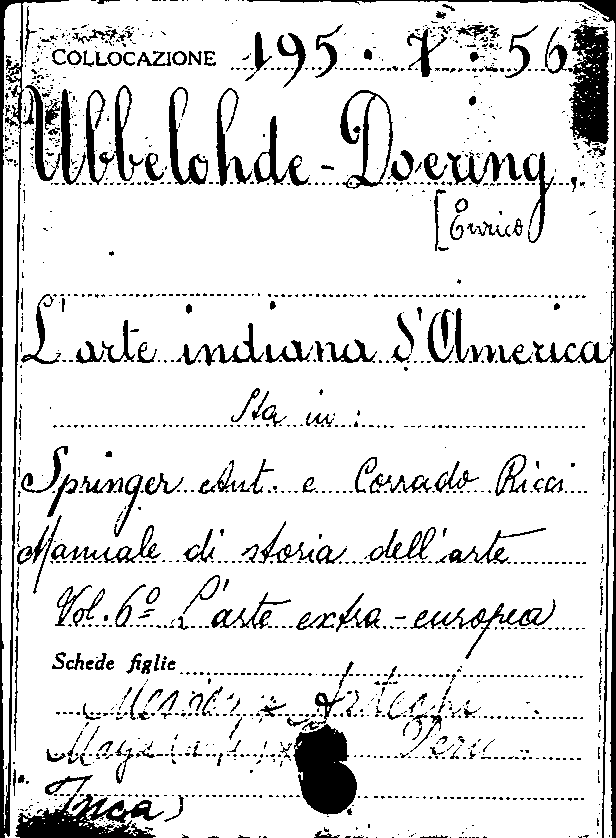 COLLOCAZIONE 195 · 7 · 56
Ubbelohde-Doering,
[Enrico
L'arte indiana d'America
Sta in:
Springer Ant. e Corrado Ricci
Manuale di storia dell'arte
Vol. 6º L'arte extra-europea
Schede figlie
Aztechi
Maya Perù
Inca)